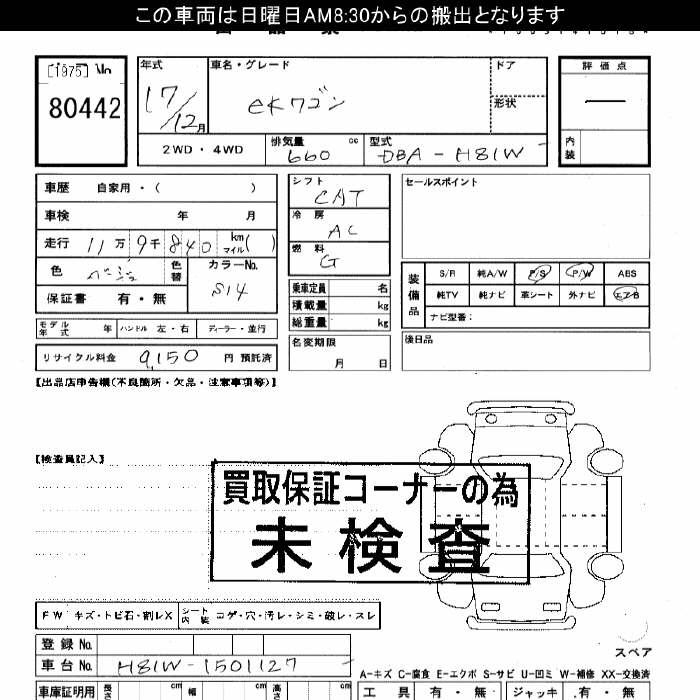 この車両は日曜日AM8:30からの搬出となります
[1975] No
80442
年式
17/12月
車名・グレード
eKワゴン
ドア
形状
評価点
内装
2WD・4WD
排気量 660 cc
型式 DBA-H81W
車歴 自家用・( )
車検 年 月
走行 11万9千840 km マイル( )
色 ベージュ 色替
カラーNo. S14
保証書 有・無
シフト CAT
冷房 AC
燃料 G
乗車定員 名
積載量 kg
総重量 kg
名変期限
月 日
セールスポイント
装備品
S/R 純A/W P/S P/W ABS
純TV 純ナビ 革シート 外ナビ エアB
ナビ型番:
後日品
モデル年式 年 ハンドル 左・右 ディーラー・並行
リサイクル料金 9,150 円 預託済
【出品店申告欄(不良箇所・欠品・注意事項等)】
【検査員記入】
買取保証コーナーの為
未検査
FW キズ・トビ石・割レX シート内装 コゲ・穴・汚レ・シミ・破レ・スレ
登録No.
車台No. H81W-1501127
スペア
A-キズ C-腐食 E-エクボ S-サビ U-凹ミ W-補修 XX-交換済
車庫証明用 長さ cm 幅 cm 高さ cm
工具 有・無 ジャッキ 有・無